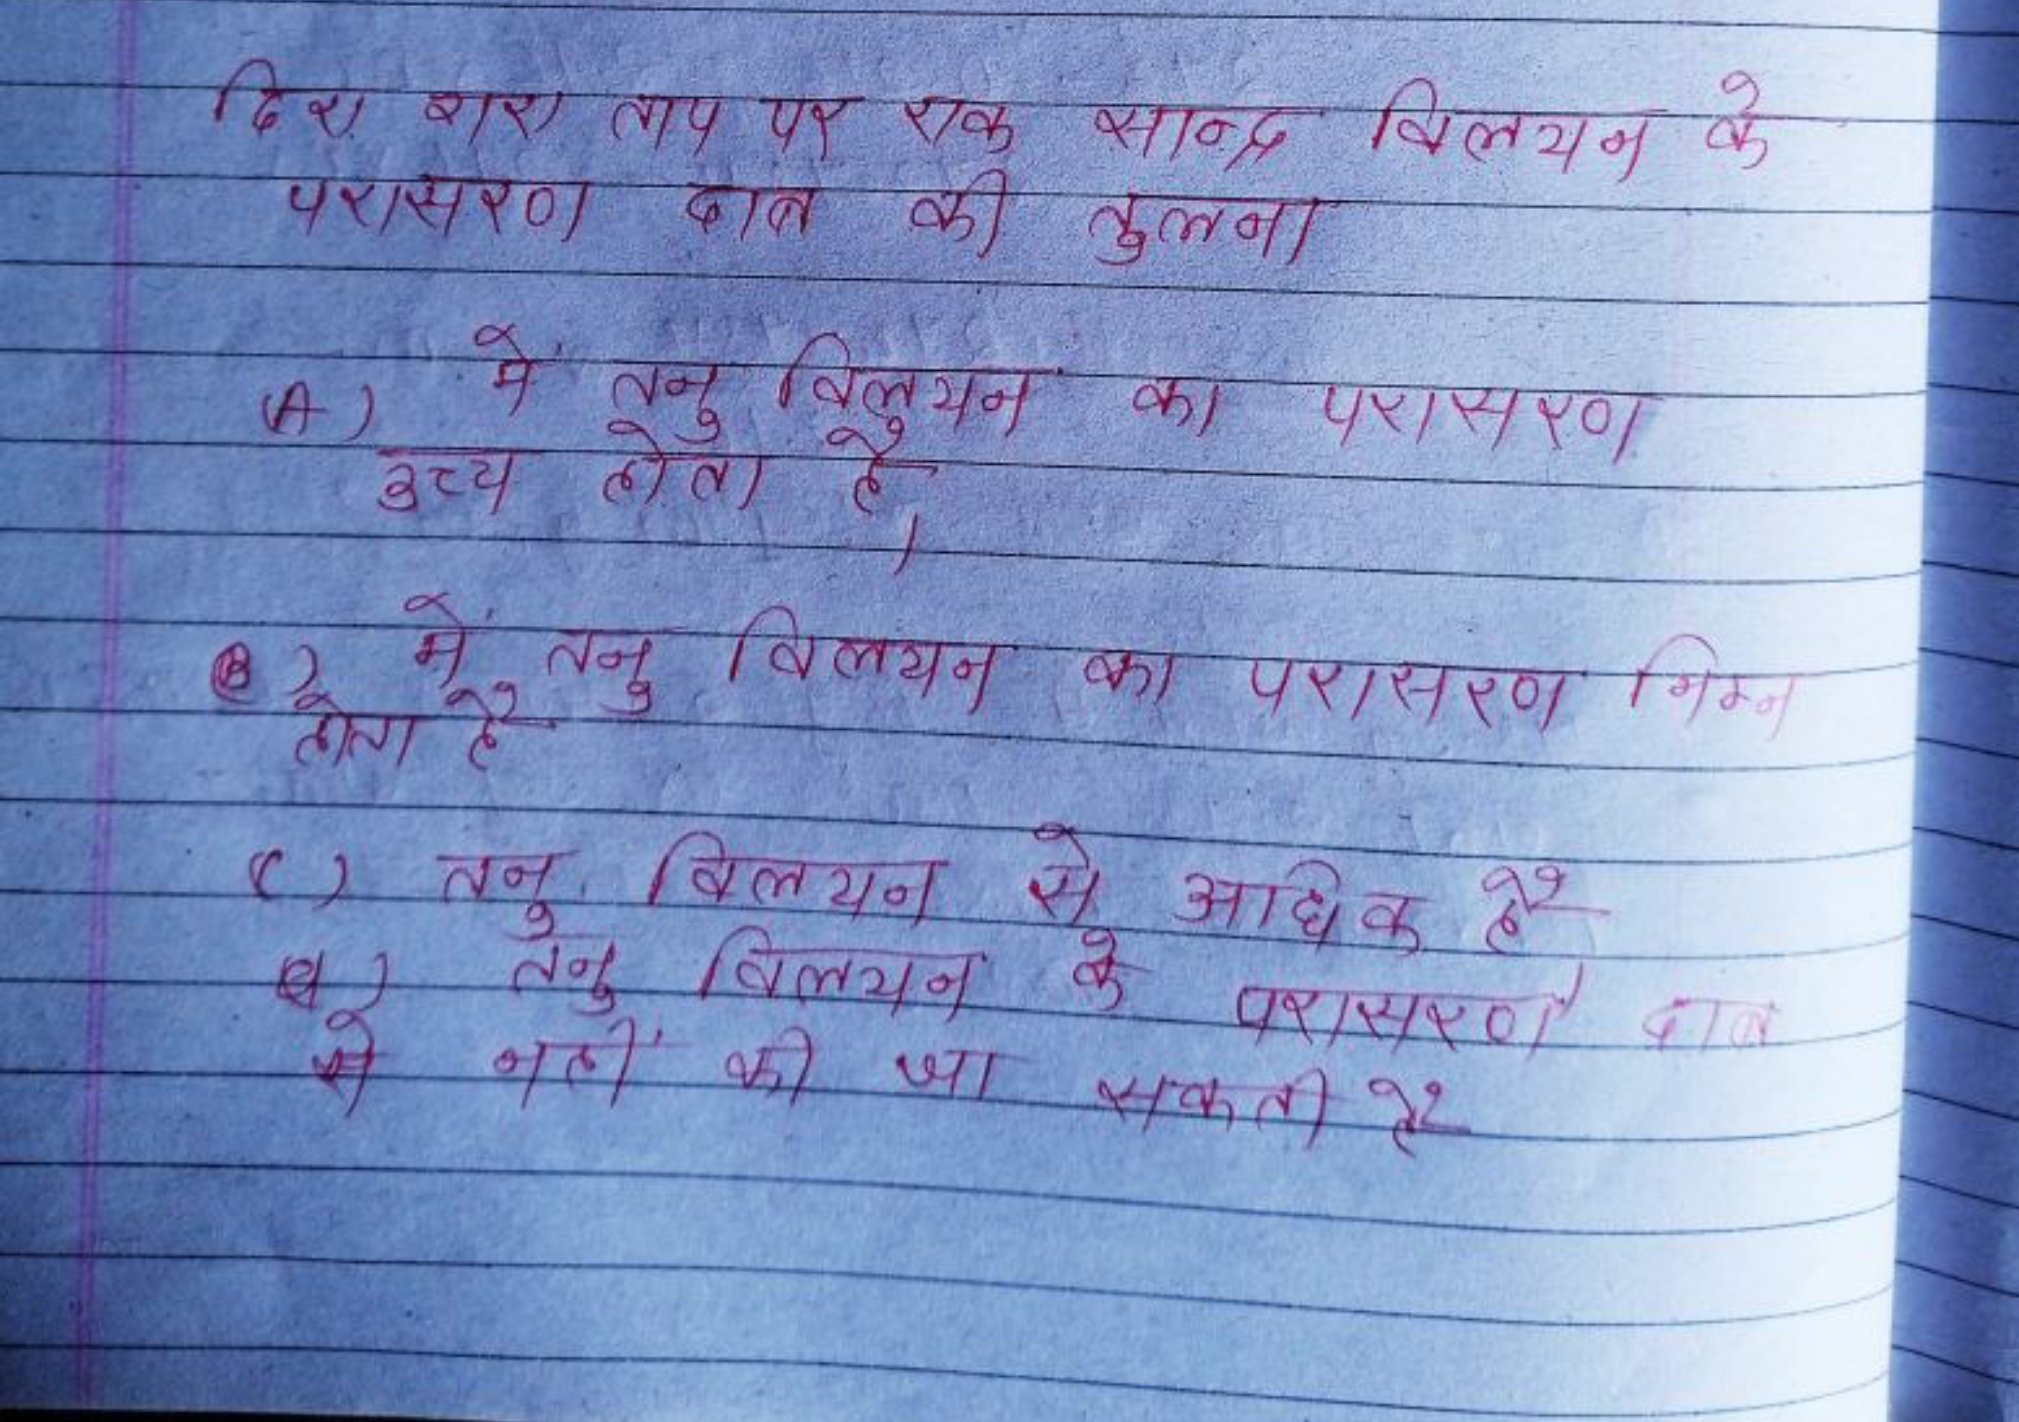 दिए गए ताप पर एक सान्द्र विलयन के
परासरण दाब की तुलना
(A) में तनु विलुयन का परासरण
उच्च होता है।
(B) में तनु विलयन का परासरण निम्न
होता है
(C) तनु विलयन से अधिक है
(d) तनु विलयन के परासरण दाब
से नहीं की जा सकती है